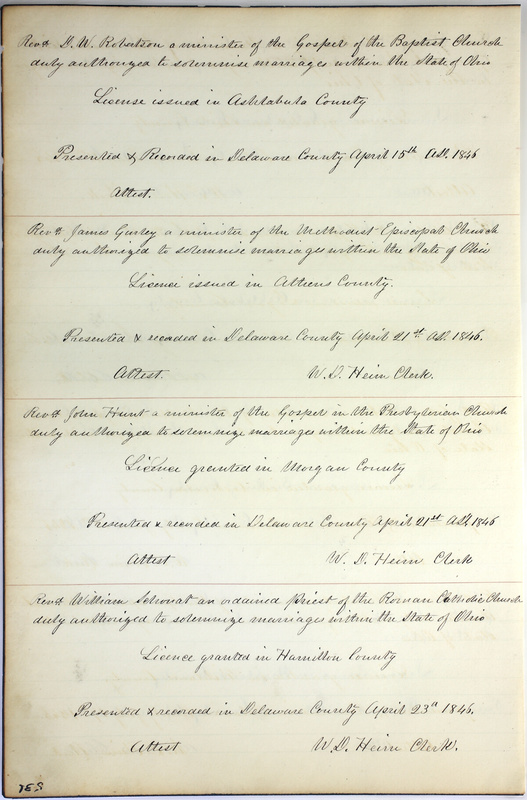 Revd D. W. Robertson a minister of the Gospel of the Baptist Church
duly authorized to solemnise marriages within the State of Ohio
License issued in Ashtabula County
Presented & Recorded in Delaware County April 15th AD. 1846
Attest.
Revd James Gurley a minister of the Methodist Episcopal Church
duly authorized to solemnise marriages within the State of Ohio
Licence issued in Athens County.
Presented & recorded in Delaware County April 21st AD. 1846.
Attest. W. D. Heim Clerk.
Revd John Hunt a minister of the Gospel in the Presbyterian Church
duly authorized to solemnize marriages within the State of Ohio
Licence granted in Morgan County
Presented & recorded in Delaware County April 21st AD, 1846
Attest W. D. Heim Clerk
Revd William Schonat an ordained Priest of the Roman Catholic Church
duly authorized to solemnize marriages within the State of Ohio
Licence granted in Hamilton County
Presented & recorded in Delaware County April 23d 1846.
Attest W. D. Heim Clerk.